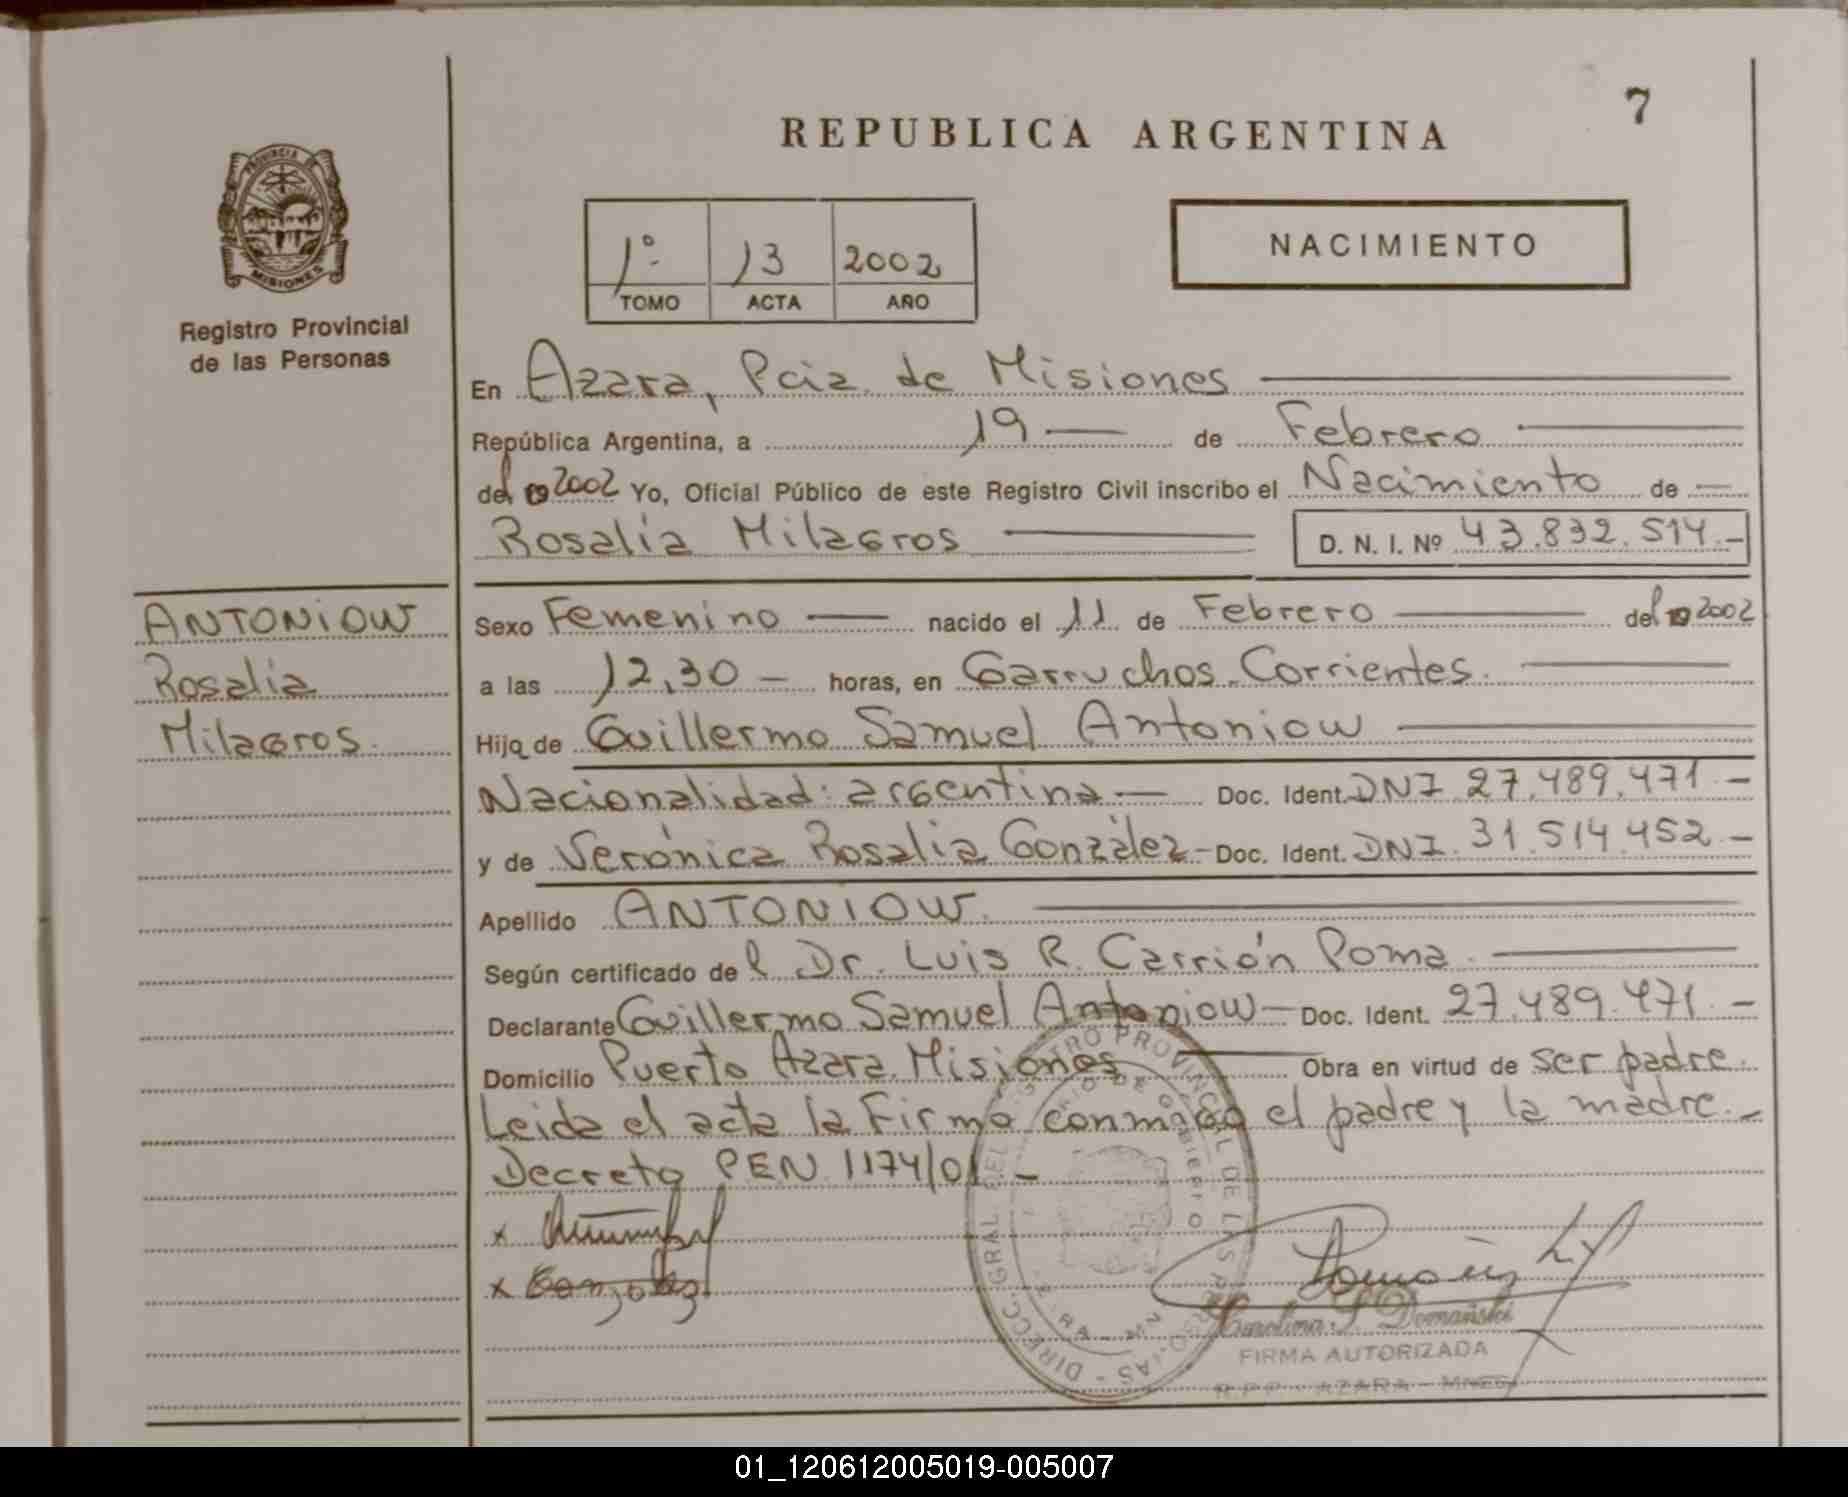 7
REPUBLICA ARGENTINA
PROVINCIA DE
MISIONES
Registro Provincial
de las Personas
1º 13 2002
TOMO ACTA AÑO
NACIMIENTO
En Azara, Pcia. de Misiones
República Argentina, a 19 de Febrero
del 2002 Yo, Oficial Público de este Registro Civil inscribo el Nacimiento de
Rosalía Milagros D. N. I. Nº 43.832.514.-
ANTONIOW
Rosalia
Milagros.
Sexo Femenino nacido el 11 de Febrero del 2002
a las 12,30 - horas, en Garruchos. Corrientes.
Hija de Guillermo Samuel Antoniow
Nacionalidad: argentina.- Doc. Ident. DNI. 27.489.471.-
y de Verónica Rosalia González - Doc. Ident. DNI. 31.514.452.-
Apellido ANTONIOW.
Según certificado del Dr. Luis R. Carrión Poma.
Declarante Guillermo Samuel Antoniow - Doc. Ident. 27.489.471.-
Domicilio Puerto Azara. Misiones Obra en virtud de ser padre.
Leida el acta la Firma conmigo el padre y la madre.-
Decreto PEN. 1174/01 -
x
x Gonzalez
Carolina S. Domañski
FIRMA AUTORIZADA
R.P.P - AZARA - MNES
01_120612005019-005007